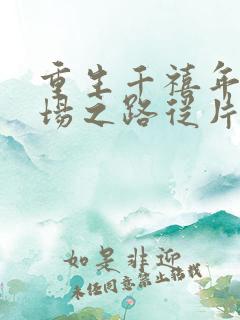 重生千禧年
场之路从片
如是非迎
未经同意禁止转载